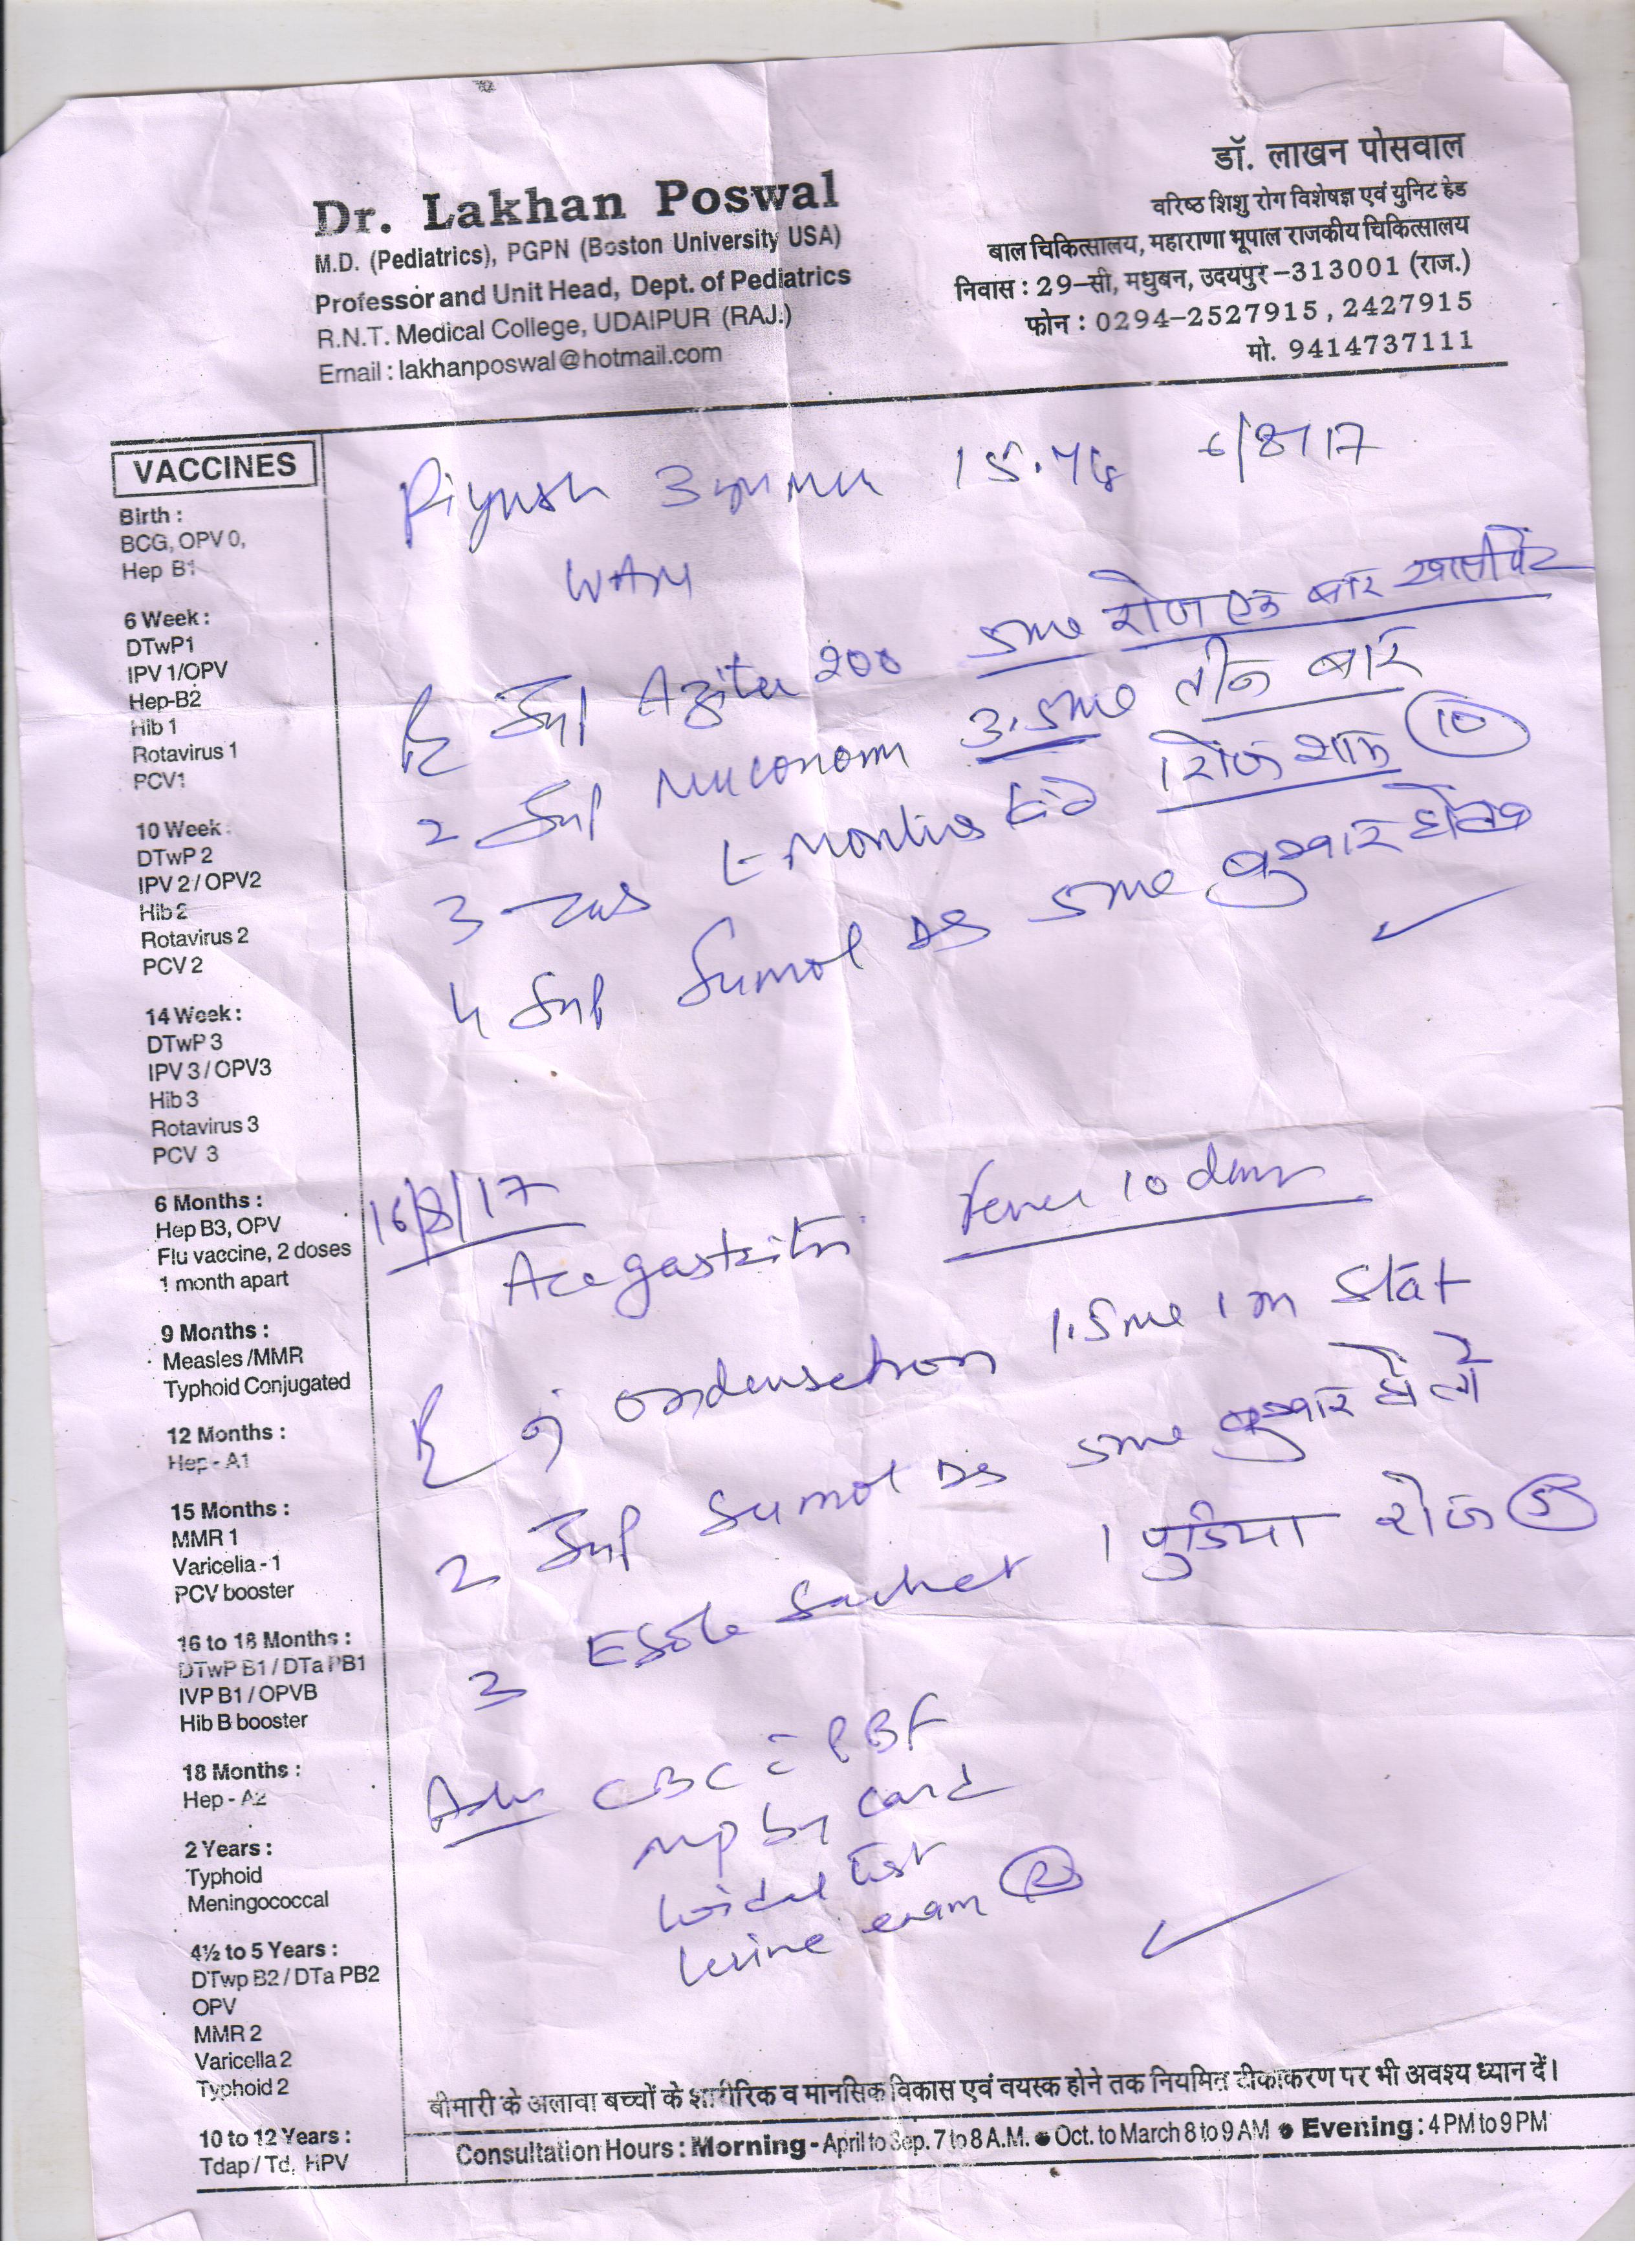 Dr. Lakhan Poswal
M.D. (Pediatrics), PGPN (Boston University USA)
Professor and Unit Head, Dept. of Pediatrics
R.N.T. Medical College, UDAIPUR (RAJ.)
Email : lakhanposwal@hotmail.com
डॉ. लाखन पोसवाल
वरिष्ठ शिशु रोग विशेषज्ञ एवं युनिट हेड
बाल चिकित्सालय, महाराणा भूपाल राजकीय चिकित्सालय
निवास : 29-सी, मधुबन, उदयपुर-313001 (राज.)
फोन : 0294-2527915, 2427915
मो. 9414737111
VACCINES
Birth :
BCG, OPV 0,
Hep B1
6 Week :
DTwP1
IPV 1/OPV
Hep-B2
Hib 1
Rotavirus 1
PCV1
10 Week :
DTwP 2
IPV 2 / OPV2
Hib 2
Rotavirus 2
PCV 2
14 Week :
DTwP 3
IPV 3 / OPV3
Hib 3
Rotavirus 3
PCV 3
6 Months :
Hep B3, OPV
Flu vaccine, 2 doses
1 month apart
9 Months :
Measles /MMR
Typhoid Conjugated
12 Months :
Hep - A1
15 Months :
MMR 1
Varicella - 1
PCV booster
16 to 18 Months :
DTwP B1 / DTa PB1
IVP B1 / OPVB
Hib B booster
18 Months :
Hep - A2
2 Years :
Typhoid
Meningococcal
4½ to 5 Years :
DTwp B2 / DTa PB2
OPV
MMR 2
Varicella 2
Typhoid 2
10 to 12 Years :
Tdap / Td, HPV
Piyush 6/8/17
Syp 200 5ml रोज एक बार
2 Syp 3.5ml तीन बार
3 Kid 1 रोज शाम 10
4 Syp Sumol DS 5ml बुखार
16/8/17 Fever 10 days
Ac gastritis
1.5ml IM Stat
2 Syp Sumol DS 5ml बुखार हो तो
3 Sachet 1 पुडिया रोज 5
Adv CBC c̄ PBF
MP by card
Widal test
Urine exam
बीमारी के अलावा बच्चों के शारीरिक व मानसिक विकास एवं वयस्क होने तक नियमित टीकाकरण पर भी अवश्य ध्यान दें।
Consultation Hours : Morning - April to Sep. 7 to 8 A.M. ● Oct. to March 8 to 9 AM ● Evening : 4 PM to 9 PM